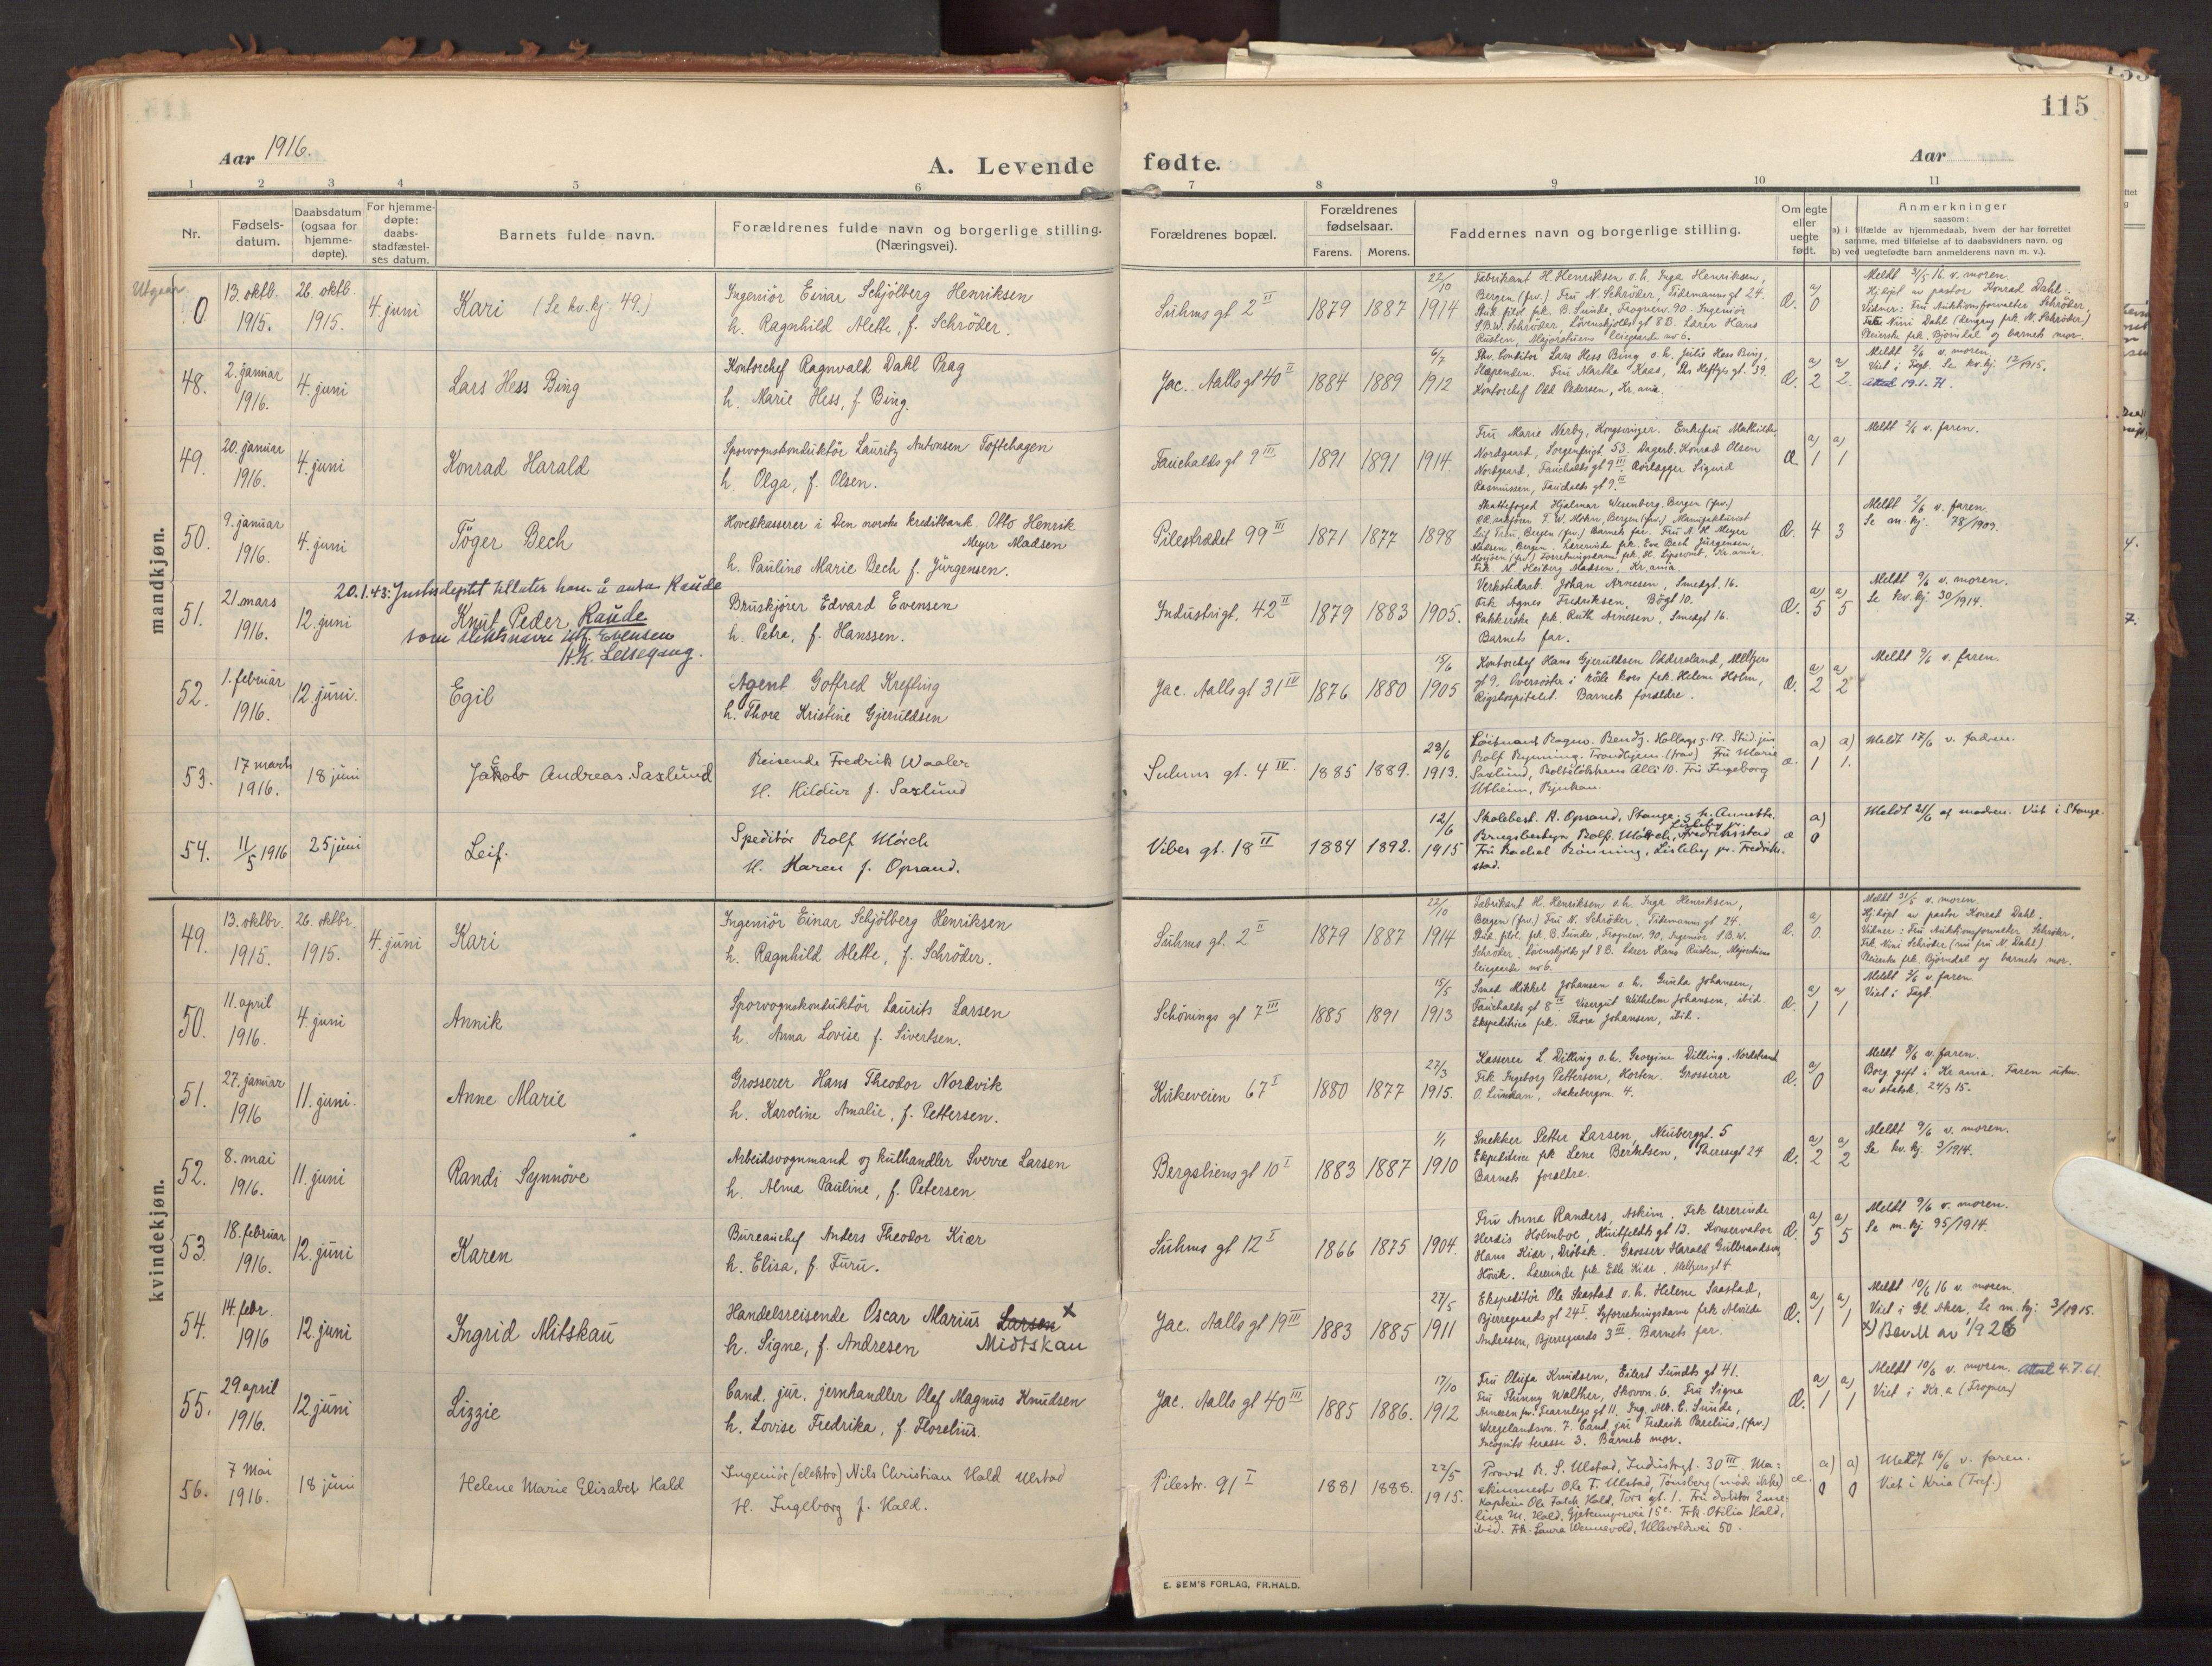 115
Aar 1916.
A. Levende fødte.
Aar
1 2 3 4 5 6 7 8 9 10 11
Nr.
Fødsels-
datum.
Daabsdatum
(ogsaa for
hjemme-
døpte).
For hjemme-
døpte:
daabs-
stadfæstel-
ses datum.
Barnets fulde navn.
Forældrenes fulde navn og borgerlige stilling.
(Næringsvei).
Forældrenes bopæl.
Forældrenes
fødselsaar.
Farens. Morens.
Faddernes navn og borgerlige stilling.
Om egte
eller
uegte
født.
Anmerkninger
saasom:
a) i tilfælde av hjemmedaab, hvem der har forrettet
samme, med tilføielse af to daabsvidners navn, og
b) ved uegtefødte barn anmelderens navn m. v.).
mandkjøn.
Utgaar
0
13. oktb.
1915.
26. oktb.
1915.
4. juni
Kari (Se kv. kj. 49.)
Ingeniör Einar Schjölberg Henriksen
h. Ragnhild Alette, f. Schröder.
Suhms gt 2 II
1879 1887
22/10
1914
Fabrikant H. Henriksen o. h. Inga Henriksen,
Bergen (frv.) Fru N. Schröder, Tidemanns gt 24.
Stud. filol. frk. B. Sunde, Frognerv. 90. Ingeniör
S.B.W. Schröder, Lövenskjolds gt 8 B. Lærer Hans
Rusten, Majorstuens leiegaard no 6.
Æ. a) 0
Meldt 31/5 16 v. moren.
Hj. döpt av pastor Konrad Dahl.
Vidner: Fru Auktionsforvalter Schröder,
Nini Dahl (dengang frk. N. Schröder)
Pleierske frk. Bjorndal og barnets mor.
48.
2. januar
1916.
4. juni
Lars Hess Bing
Kontorchef Ragnvald Dahl Prag
h. Marie Hess, f. Bing.
Jac. Aalls gt 40 II
1884 1889
6/7
1912
Lars Hess Bing o. h. Julie Hess Bing,
Slependen. Fru Martha Kaas, Ths Heftyes gt. 39.
Kontorchef Odd Pedersen, Kr.ania.
Æ. a) 2 a) 2.
Meldt 2/6 v. moren.
Viet i Fagt. Se kv. kj. 12/1915.
Attest 19.1.71.
49.
20. januar
1916.
4. juni
Konrad Harald
Sporvognskonduktör Lauritz Antonsen Toftehagen
h. Olga, f. Olsen.
Fauchalds gt 9 III
1891 1891 1914
Fru Marie Nerby, Kongsvinger. Enkefru Mathilde
Nordgaard, Sorgenfrigt 53. Dagarb. Konrad Olsen
Nordgaard, Fauchalds gt 9 III. Avlægger Sigurd
Rasmussen, Fauchalds gt 9 III.
Æ. a) 1 a) 1
Meldt 2/6 v. faren.
50.
9. januar
1916.
4. juni
Töger Bech
Hovedkasserer i Den norske Kreditbank Otto Henrik
Meyer Madsen
h. Pauline Marie Bech f. Jürgensen.
Pilestrædet 99 III
1871 1877 1898
Skattefoged Hjalmar Wesenberg. Bergen (frv.)
F. W. Mohn, Bergen (frv.) Manufakturist
Bergen (frv.) Barnets far. Fru N. H. Meyer
Madsen, Bergen. Lærerinde frk. Eva Bech Jürgensen,
(frv.) Forretningsdame frk. H. Kr.ania.
Frk. M. Heiberg Madsen, Kr.ania.
Æ. 4 3
Meldt 2/6 v. faren.
Se m. kj. 78/1909.
51.
21. mars
1916.
12. juni
20.1.43: Justisdeptet tillater ham å anta Raude
Knut Peder Raude
som slektsnavn istf. Evensen
H.K. Lessegang.
Bruskjører Edvard Evensen
h. Petra, f. Hanssen.
Industrigt. 42 II
1879 1883 1905.
Verkstedarb. Johan Arnesen, Smedgt. 16.
Frk Agnes Fredriksen, Bögt 10.
Pakkerske frk. Ruth Arnesen, Smedgt 16.
Barnets far.
Æ. a) 5 a) 5
Meldt 9/6 v. moren.
Se kv. kj. 30/1914.
52.
1. februar
1916.
12. juni.
Egil
Agent Gotfred Krefting
h. Thora Kristine Gjeruldsen
Jac. Aalls gt 31 IV
1876 1880
15/6
1905
Kontorchef Hans Gjeruldsen Odderoland, Meltzers
gt 9. Oversöster i röde kors frk. Helene Holm,
Rigshospitalet. Barnets forældre.
Æ. a) 2 a) 2
Meldt 9/6 v. faren.
53.
17 marts
1916.
18 juni
Jakob Andreas Saxlund
Reisende Fredrik Waaler
H. Hildur f. Saxlund
Suhms gt. 4 IV.
1885 1889.
28/6
1913.
Löitnant Ragnv. Bendz. Hollags g. 19. Stud. jur
Rolf Rynning. Trondhjem. (frav.) Fru Marie
Saxlund, Alle 10. Fru Ingeborg
Utheim, Rjukan.
æ a) 1 a) 1.
Meldt 17/6 v. fadren.
54.
11/5 1916
25 juni
Leif.
Speditör Rolf Mörch
H. Karen f. Opsand.
Vibes gt. 18 II
1884 1892.
12/6
1915
Skolebest. R. Opsand, Stange. o. h. Annette.
Brugsbestyrer Rolf. Mörch, Lisleby pr. Fredrikstad
Fru Rachel Rönning, Lisleby pr. Fredrik-
stad.
æ a) 0
Meldt 21/6 af modren. Viet i Stange.
kvindekjøn.
49.
13. oktbr.
1915.
26. oktbr
1915.
4. juni
Kari
Ingeniör Einar Schjölberg Henriksen
h. Ragnhild Alette, f. Schröder.
Suhms gt. 2 II
1879 1887
22/10
1914
Fabrikant H. Henriksen o. h. Inga Henriksen,
Bergen (frv.) Fru N. Schröder, Tidemanns gt 24.
Stud. filol. frk. B. Sunde, Frognerv. 90, Ingeniör S.B.W.
Schröder, Lövenskjolds gt 8 B. Lærer Hans Rusten, Majorstuens
leiegaard no 6.
Æ. a) 0.
Meldt 31/5 v. moren.
Hj. döpt av pastor Konrad Dahl.
Vidner: Fru Auktionsforvalter Schröder,
Frk. Nini Schröder (nu fru N. Dahl).
Pleierske frk. Björndal og barnets mor.
50.
11. april
1916.
4. juni
Annik
Sporvognskonduktör Laurits Larsen
h. Anna Lovise f. Sivertsen.
Schönings gt 7 III
1885 1891
15/5
1913
Smed Mikkel Johansen o. h. Gunda Johansen,
Fauchalds gt 8 III. Visergut Wilhelm Johansen, ibid.
Ekspeditrice frk. Thora Johansen, ibid.
Æ. a) 1 a) 1
Meldt 3/6 v. faren.
Viet i Fagt.
51.
27. januar
1916
11. juni.
Anne Marie
Grosserer Hans Theodor Nordvik
h. Karoline Amalie, f. Pettersen.
Kirkeveien 67 I
1880 1877
27/3
1915.
Kasserer L. Dilling o. h. Georgine Dilling, Nordstrand
Frk Ingeborg Pettersen, Horten. Grosserer
O. Aakebergvn. 4.
Æ. a) 0
Meldt 8/6 v. faren.
Borg. gift i Kr.ania. Faren utm.
av statsk. 24/3 15.
52.
8. mai
1916.
11. juni
Randi Synnöve
Arbeidsvognmand og kulhandler Sverre Larsen
h. Alma Pauline, f. Petersen.
Bergsliens gt 10 I
1883 1887
1/1
1910
Snekker Petter Larsen, Neuberggt. 5
Ekspeditrice frk Lene Berntsen, Theresegt 24
Barnets forældre.
Æ. a) 2 a) 2
Meldt 9/6 v. moren.
Se kv. kj. 3/1914.
53.
18. februar
1916.
12. juni
Karen
Bureauchef Anders Theodor Kiær
h. Elisa, f. Furu.
Suhms gt 12 I
1866 1875 1904.
Fru Anna Randers, Askim. Frk lærerinde
Herdis Holmboe, Huitfeldts gt 13. Konservator
Hans Kiær, Dröbak. Grosser Harald Gulbrandsen,
Hövik. Lærerinde frk Edle Kiær. Meltzers gt 4
Æ. a) 5 a) 5
Meldt 9/6 v. moren.
Se m. kj 95/1914.
54.
14. febr.
1916
12. juni
Ingrid Mitskau
Handelsreisende Oscar Marius Larsen x
h. Signe, f. Andresen Midtskau
Jac. Aalls gt 19 III
1883 1885
27/5
1911
Ekspeditör Ole Saastad o. h. Helene Saastad,
Bjerregaards gt 24 I. Syforretningsdame frk Alvilde
Andresen, Bjerregaards 3 III. Barnets far.
Æ. a) 1 a) 1
Meldt 10/6 16 v. moren.
Viet i Gl. Aker. Se m. kj: 3/1915.
x) Bev.M av 1/9 26
55.
29. april
1916.
12 juni
Lizzie
Cand. jur. jernhandler Olaf Magnus Knudsen
h. Lovise Fredrika, f. Florelius.
Jac. Aalls gt 40 III
1885 1886.
17/10
1912
Fru Olufa Knudsen, Eilert Sundts gt 41.
Fru Thinny Walther, Skovvn. 6. Fru Signe
Arnesen frv. Fearnleys gt 11. Ing. Alb. C. Sunde,
Wergelandsvn. 7. Cand jur Fredrik Parelius, (frv.)
Incognito terasse 3. Barnets mor.
Æ. a) 1 a) 1
Meldt 10/6 v. moren. Attest 4.7.61.
Viet i Kr.a (Frogner)
56.
7 Mai
1916.
18 juni
Helene Marie Elisabet Hald
Ingeniör (elektro) Nils Christian Hald Ulstad
H. Ingeborg f. Hald.
Pilestr. 91 I
1881 1888.
22/5
1915.
Provst R. S. Ulstad, Industrigt. 30 III. Ma-
skinmester Ole F. Ulstad, Tönsberg (möde ikke)
Kaptein Ole Falch Hald, Tors gt. 1. Fru doktor Eme-
line M. Hald, 15 c. Frk. Otilia Hald,
ibid. Frk. Laura Wennevold, Ullevoldsvei 50.
æ. a) 0 a) 0
Meldt 16/6 v. faren.
Viet i Kria (Tref.)
E. SEM'S FORLAG, FR.HALD.